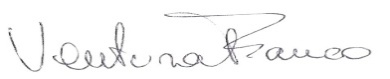 Ventura Franco